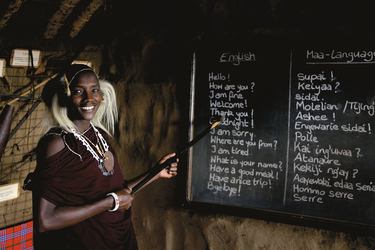 English
Hello!
How are you?
I am fine
Welcome!
Thank you!
Goodnight!
I am sorry.
Where are you from?
I am tired.
What is your name?
Have a good meal!
Have a nice trip!
Bye bye!
Maa-Language
Supai!
Keiyaa?
sidai.
Molelian /
Ashee!
Engawarie sidai!
Polle
Kai ingúwaa?
Atanaure
Kekiji ngay?
edaa
Hommo serre
Serre